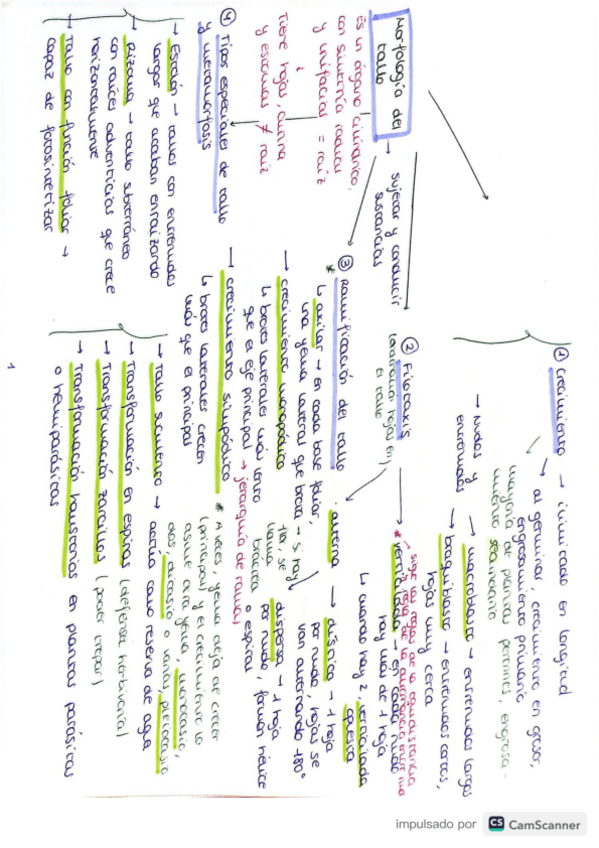 Morfología del
tallo
Es un órgano cilíndrico,
con simetría radial
y unifacial = raíz
Tiene hojas, cutina
y estomas ≠ raíz
→ sujetar y conducir
sustancias
① Crecimiento → ilimitado en longitud
↳ al germinar, crecimiento en grosor,
engrosamiento primario
mayoría de plantas perennes, engrosa-
miento secundario
→ nudos y
entrenudos
→ macroblasto → entrenudos largos
→ braquiblasto → entrenudos cortos,
hojas muy cerca
② Filotaxis
(colocación hojas en
el tallo)
* verticilada → en cada nudo
hay más de 1 hoja
↳ cuando hay 2, verticilada
opuesta
· alterna → dística → 1 hoja
por nudo, hojas se
van alternando 180°
dispersa → 1 hoja
por nudo, forman hélice
o espiral
③ Ramificación del tallo
*
↳ axilar → en cada base foliar,
una yema lateral que brota → si hay
, se
llama
bráctea
→ crecimiento monopódico
↳ brotes laterales más lento
que el eje principal → jerarquía de ramas
→ crecimiento simpódico
↳ brotes laterales crecen
más que el principal
* A veces, yema deja de crecer
(principal) y el crecimiento lo
asume otra yema, monocasio,
dos, dicasio o varias, pleiocasio
④ Tipos especiales de tallo
y metamorfosis
→ Estolón → tallos con entrenudos
largos que acaban enraizando
→ Rizoma → tallo subterráneo
con raíces adventicias que crece
horizontalmente
→ Tallo con función foliar →
capaz de fotosintetizar
→ Tallo suculento → actúa como reserva de agua
→ Transformación en espinas (defensa herbivoría)
→ Transformación zarcillos (poder trepar)
→ Transformación haustorios en plantas parásitas
o hemiparásitas
1
impulsado por CS CamScanner